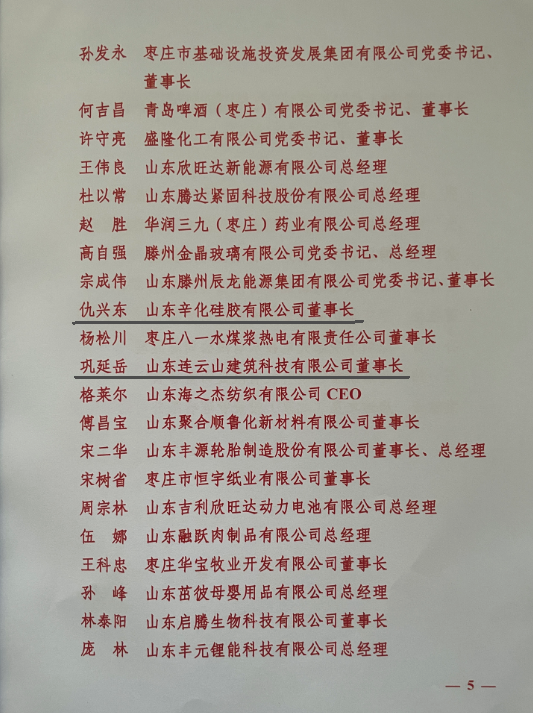 孙发永 枣庄市基础设施投资发展集团有限公司党委书记、
董事长
何吉昌 青岛啤酒（枣庄）有限公司党委书记、董事长
许守亮 盛隆化工有限公司党委书记、董事长
王伟良 山东欣旺达新能源有限公司总经理
杜以常 山东腾达紧固科技股份有限公司总经理
赵 胜 华润三九（枣庄）药业有限公司总经理
高自强 滕州金晶玻璃有限公司党委书记、总经理
宗成伟 山东滕州辰龙能源集团有限公司党委书记、董事长
仇兴东 山东辛化硅胶有限公司董事长
杨松川 枣庄八一水煤浆热电有限责任公司董事长
巩延岳 山东连云山建筑科技有限公司董事长
格莱尔 山东海之杰纺织有限公司 CEO
傅昌宝 山东聚合顺鲁化新材料有限公司董事长
宋二华 山东丰源轮胎制造股份有限公司董事长、总经理
宋树省 枣庄市恒宇纸业有限公司董事长
周宗林 山东吉利欣旺达动力电池有限公司总经理
伍 娜 山东融跃肉制品有限公司总经理
王科忠 枣庄华宝牧业开发有限公司董事长
孙 峰 山东茁彼母婴用品有限公司总经理
林泰阳 山东启腾生物科技有限公司董事长
庞 林 山东丰元锂能科技有限公司总经理
— 5 —